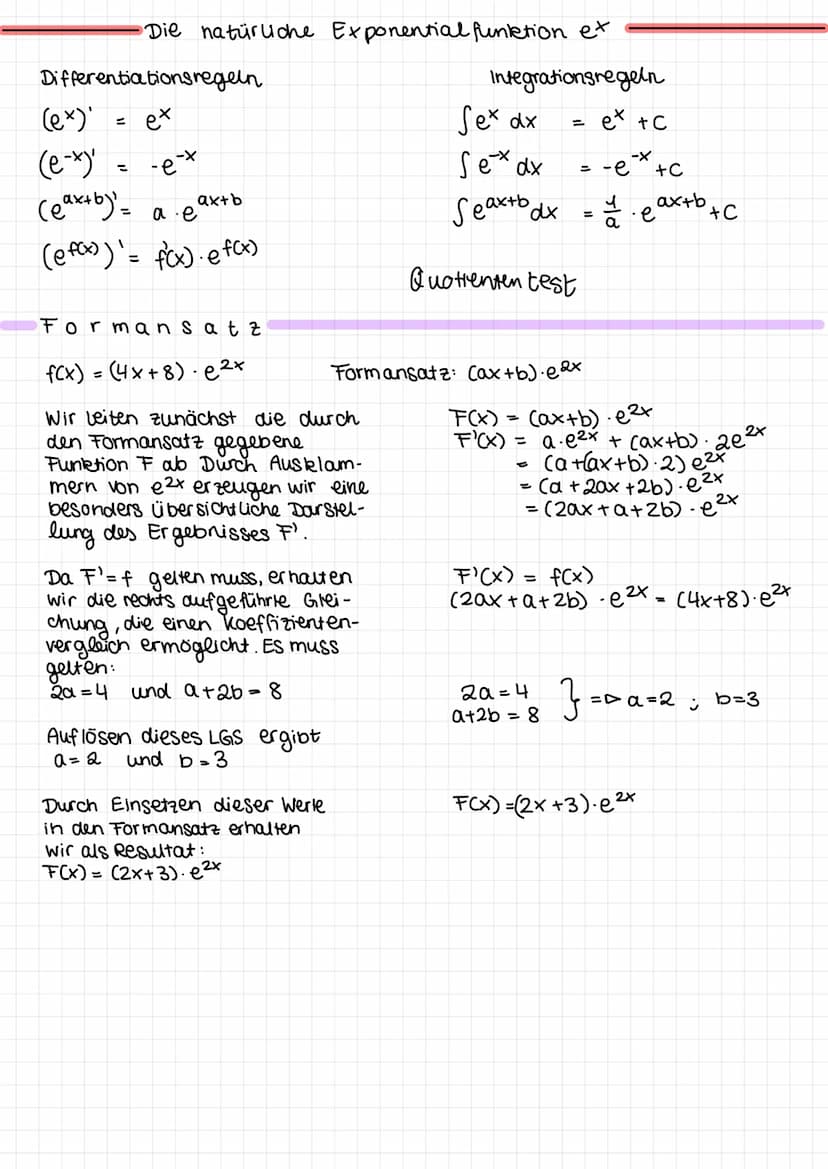 Die natürliche Exponentialfunktion eˣ
Differentiationsregeln
(eˣ)' = eˣ
(e⁻ˣ)' = -e⁻ˣ
(e^(ax+b))' = a · e^(ax+b)
(e^(f(x)))' = f'(x) · e^(f(x))
Integrationsregeln
∫eˣ dx = eˣ + C
∫e⁻ˣ dx = -e⁻ˣ + C
∫e^(ax+b) dx = 1/a · e^(ax+b) + C
Quotienten test
Formansatz
f(x) = (4x+8) · e^2x
Formansatz: (ax+b) · e^2x
Wir leiten zunächst die durch
den Formansatz gegebene
Funktion F ab Durch Ausklam-
mern von e^2x erzeugen wir eine
besonders übersichtliche Darstel-
lung des Ergebnisses F'.
F(x) = (ax+b) · e^2x
F'(x) = a · e^2x + (ax+b) · 2e^2x
= (a+(ax+b) · 2) e^2x
= (a + 2ax + 2b) · e^2x
= (2ax + a + 2b) · e^2x
Da F' = f gelten muss, erhalten
wir die rechts aufgeführte Glei-
chung, die einen Koeffizienten-
vergleich ermöglicht. Es muss
gelten:
2a = 4 und a+2b = 8
F'(x) = f(x)
(2ax + a + 2b) · e^2x = (4x+8) · e^2x
2a = 4
a+2b = 8 } => a=2 ; b=3
Auflösen dieses LGS ergibt
a = 2 und b = 3
Durch Einsetzen dieser Werte
in den Formansatz erhalten
wir als Resultat:
F(x) = (2x+3) · e^2x
F(x) = (2x+3) · e^2x